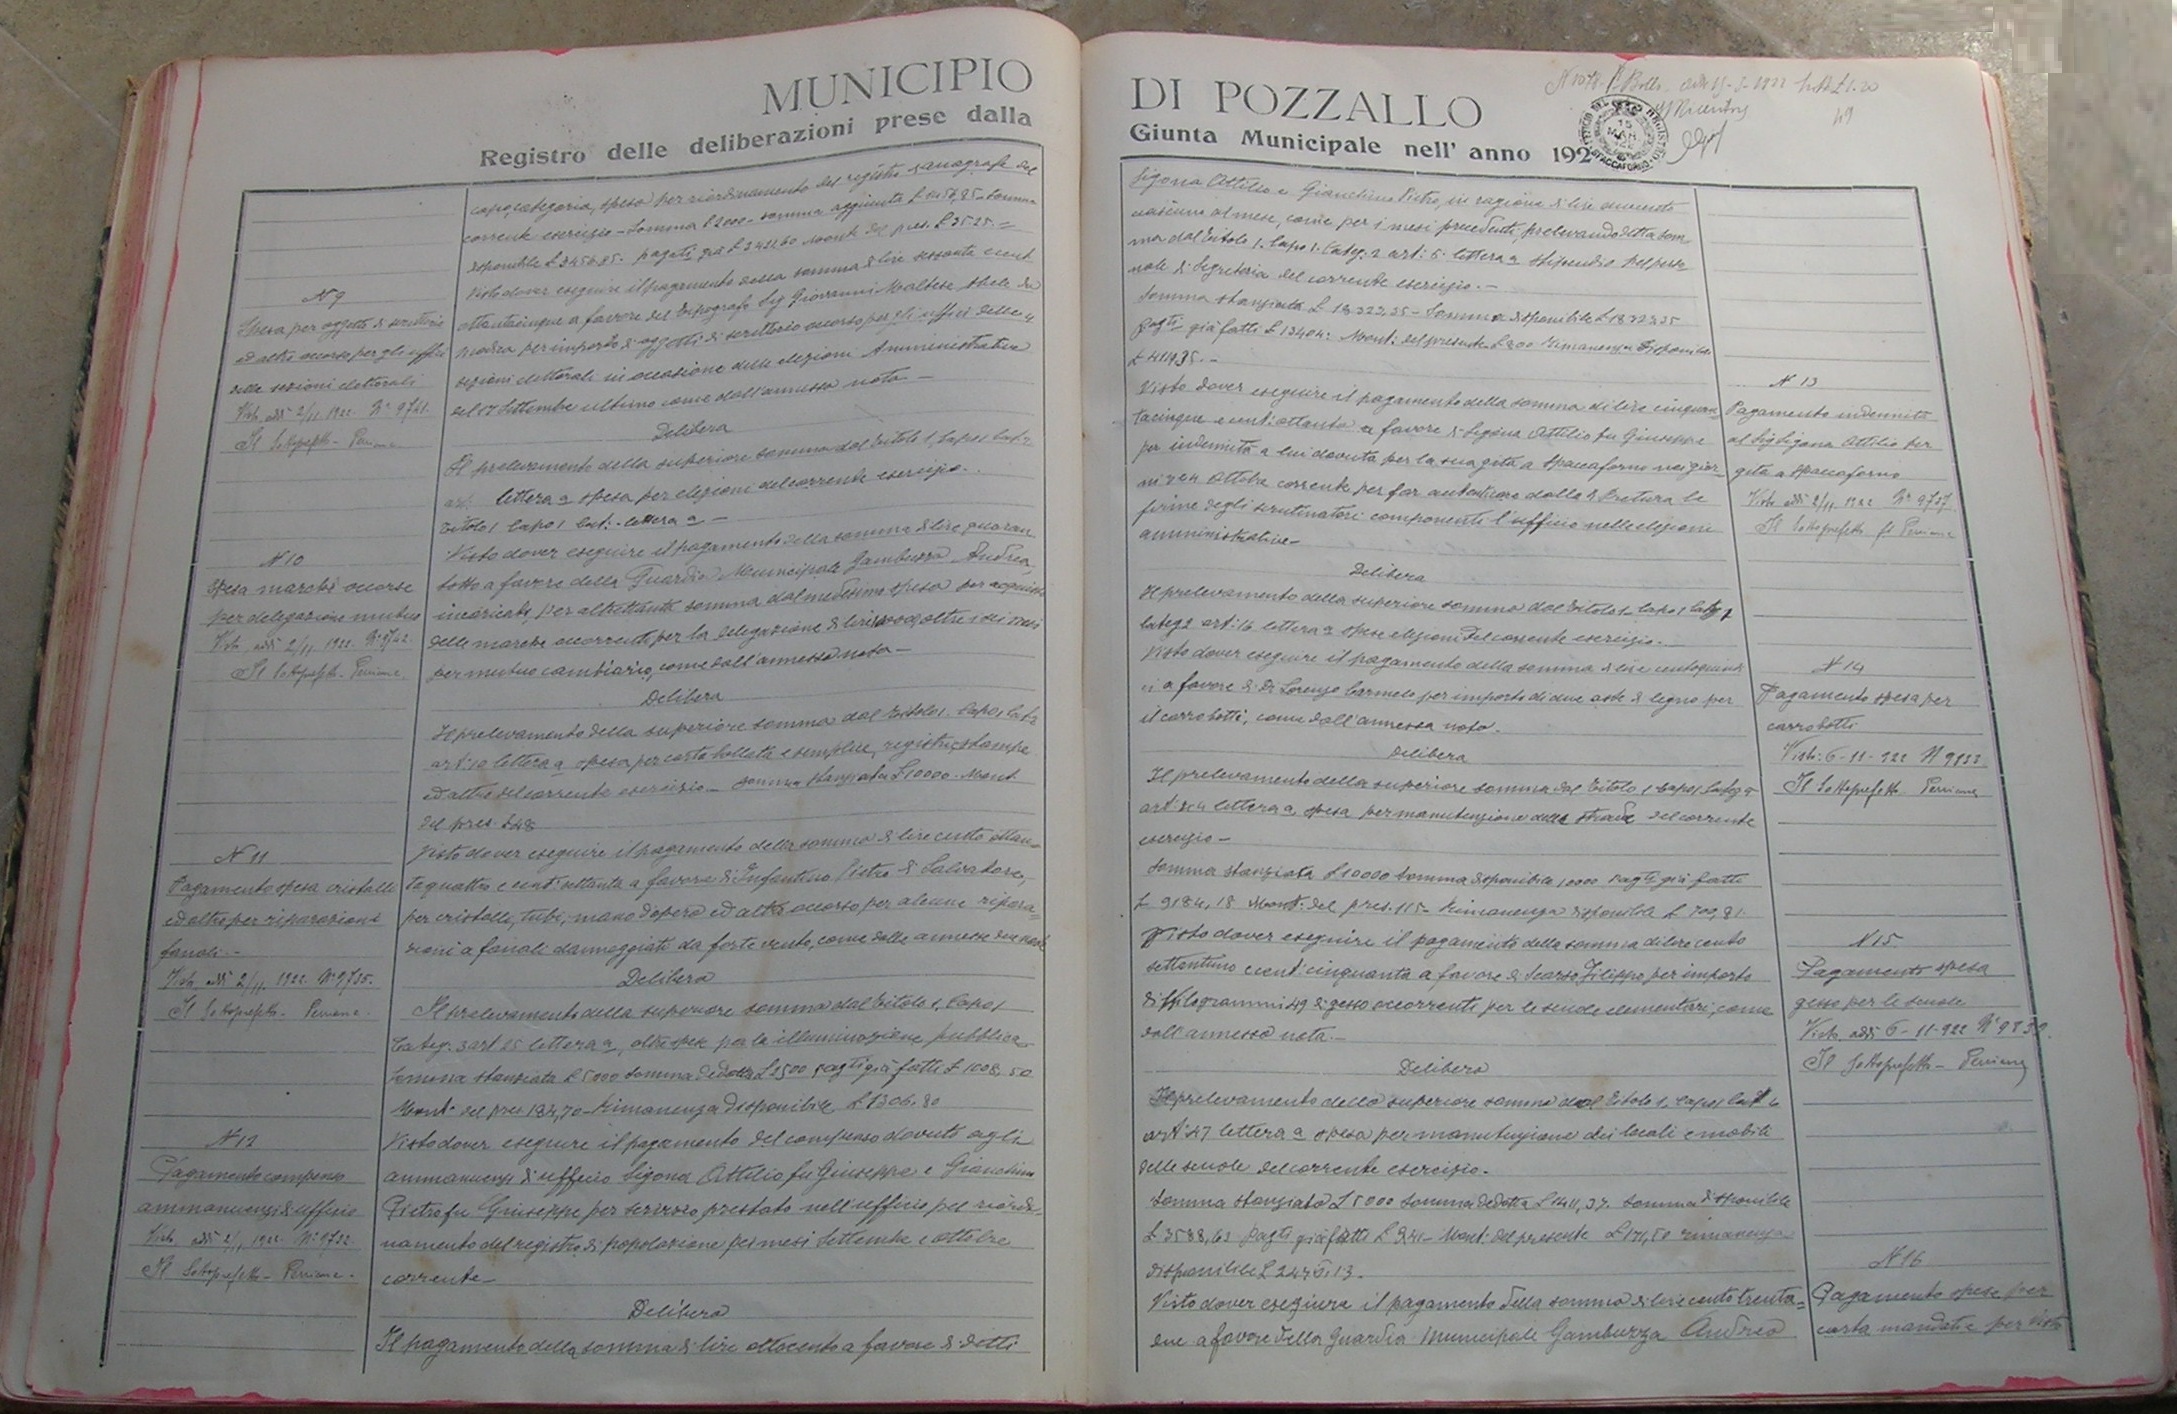 MUNICIPIO
Registro delle deliberazioni prese dalla
N 9
Spesa per oggetti di scrittorio
ed altro occorso per gli uffici
delle sezioni elettorali
Visto addì 2/11 1922. N° 9741.
Il Sottoprefetto
N 10
Spesa marche occorse
per delegazione mutuo
Visto addì 2/11 1922. N° 9742.
Il Sottoprefetto
N 11
Pagamento spesa cristalli
ed altro per riparazione
fanali.-
Visto addì 2/11 1922. N° 9735.
Il Sottoprefetto
N 12
Pagamento compenso
ammanuensi d'ufficio
Visto addì 2/11 1922. N° 9732.
Il Sottoprefetto
capo, categoria, spesa per riordinamento del registro anagrafe del
corrente esercizio - Somma £ 2000 - somma aggiunta
disponibile pagati già Mont. del pres. £ 3525.=
Visto dover eseguire il pagamento della somma di lire sessanta e cent.
ottantacinque a favore del Tipografo Sig Giovanni Maltese Abela da
Modica per importo d'oggetti di scrittorio occorso per gli uffici delle 4
sezioni elettorali in occasione delle elezioni Amministrative
del 17 Settembre ultimo come dall'annessa nota. -
Delibera
Il prelevamento della superiore somma dal Titolo 1, Capo 1 Cat. 2
art. lettera a spesa per elezioni del corrente esercizio.
Titolo 1 Capo 1 Cat: - lettera a -
Visto dover eseguire il pagamento della somma di lire quaran
totto a favore della Guardia Municipale Gambuzza Andrea
incaricato, per altrettanta somma dal medesimo spesa per acquisto
delle marche occorrenti per la delegazione di lire oltre i
per mutuo cambiario, come dall'annessa nota -
Delibera
Il prelevamento della superiore somma dal Titolo 1. Capo 1 Cat 2
art. 10 lettera a spesa per carta bollata e semplice, registri, stampe
ed altro del corrente esercizio - Somma stanziata £ 10000. Mont.
del pres. £ 48
Visto dover eseguire il pagamento della somma di lire cento ottan=
taquattro e cent: settanta a favore di Infantino Pietro di Salvatore,
per cristalli, tubi, mano d'opera ed altro occorso per alcune ripara=
zioni a fanali danneggiati da forte vento, come dalle annesse due note
Delibera
Il prelevamento della superiore somma dal Titolo 1, Capo 1
Categ. 3 art 25 lettera a, altre spese per la illuminazione pubblica -
Somma stanziata £ 5000 Somma dedotta £ 2500 pagti già fatti £ 1008,50
Mont. del pres 184,70 - Rimanenza disponibile £ 1306.80
Visto dover eseguire il pagamento del compenso dovuto agli
ammanuensi d'ufficio Sigona Attilio fu Giuseppe e Gianchino
Pietro fu Giuseppe per servizio prestato nell'ufficio pel riordi-
namento del registro di popolazione pei mesi Settembre e Ottobre
corrente -
Delibera
Il pagamento della somma di lire ottocento a favore di detti
DI POZZALLO
Giunta Municipale nell' anno 192
N 1078
49
15
MAR
Sigona Attilio e Gianchino Pietro, in ragione di lire duecento
ciascuno al mese, come per i mesi precedenti, prelevando detta som
ma dal Titolo 1. Capo 1. Categ. 2 art: 5 lettera a Stipendio pel perso
nale di Segreteria del corrente esercizio. -
Somma stanziata £ 18323,35 - Somma disponibile £ 18323,35
Pagti già fatti £ 13404: Mont: del presente £ 800 Rimanenza disponibile
£ 4119,35. -
Visto dover eseguire il pagamento della somma di lire cinquan-
tacinque e cent: ottanta a favore di Sigona Attilio fu Giuseppe
per indennità a lui dovuta per la sua gita a Spaccaforno nei gior
ni Ottobre corrente per far autenticare dalla R Pretura le
firme degli scrutinatori componenti l'ufficio nelle elezioni
amministrative -
Delibera
Il prelevamento della superiore somma dal Titolo 1 Capo 1 Categ
Categ 2 art: 16 lettera a spese elezioni del corrente esercizio. -
Visto dover eseguire il pagamento della somma di lire centoquindi
ci a favore di Di Lorenzo Carmelo per importo di due aste di legno per
il carrobotti, come dall'annessa nota.
Delibera
Il prelevamento della superiore somma dal Titolo 1 Capo 1 Categ
art. lettera a, spesa per manutenzione delle strade del corrente
esercizio -
Somma stanziata £ 10000 Somma disponibile 10000 Pagti già fatti
£ 9184,18 Mont. del pres. 115 - Rimanenza disponibile £ 700,81
Visto dover eseguire il pagamento della somma di lire cento
settantuno e cent: cinquanta a favore di Scarso Filippo per importo
di Kilogrammi 49 di gesso occorrenti per le scuole elementari, come
dall'annessa nota. -
Delibera
Il prelevamento della superiore somma dal Titolo 1, Capo 1 Cat
art. 47 lettera a spesa per manutenzione dei locali e mobili
delle scuole del corrente esercizio.
Somma stanziata £ 5000 Somma dedotta £ 1411,37. Somma disponibile
£ 3588,63 Pagti già fatti £ 941 - Mont: del presente £ 171,50 rimanenza
disponibile £ 2476,13.
Visto dover eseguire il pagamento della somma di lire cento trenta=
due a favore della Guardia Municipale Gambuzza Andrea
N 13
Pagamento indennità
al Sig Sigona Attilio per
gita a Spaccaforno
Visto addì 2/11 1922 N° 9737
Il Sottoprefetto
N 14
Pagamento spesa per
carrobotti
Visto: 6-11-922 N 9833
Il Sottoprefetto
N 15
Pagamento spesa
gesso per le scuole
Visto addì 6-11-922 N° 9832.
Il Sottoprefetto -
N 16
Pagamento spese per
carta mandati e per visto